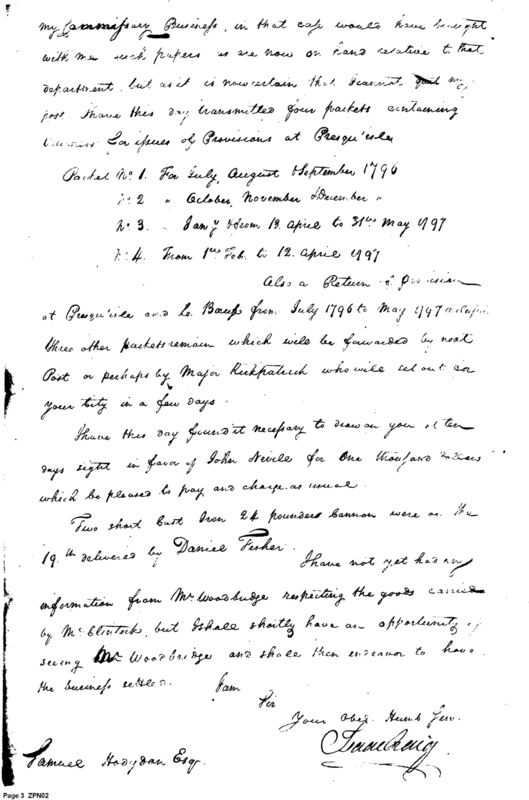 my Commissary Business, in that case would have brought
with me such papers as are now on hand relative to that
department, but as it is now certain that I cannot quit my
post I have this day transmitted four packets containing
for issues of Provisions at Presqu'isle
Packet No 1. For July, August & September 1796
No 2 " October, November & December "
No 3. " Jany & from 13 April to 31st May 1797
No 4. From 1st Feb. to 12 April 1797
Also a Return of provision
at Presqu'isle and Le Boeuf from July 1796 to May 1797 inclusive
three other packets remain which will be forwarded by next
Post or perhaps by Major Kirkpatrick who will set out for
your City in a few days.
I have this day found it necessary to draw on you at ten
days sight in favor of John Nevill for One thousand
which be pleased to pay and charge as usual
Two short Cast Iron 24 pounders Cannon were on the
19th delivered by Daniel Fisher.
I have not yet had any
information from Mr Woodbridge respecting the goods carried
by McClintock, but I shall shortly have an opportunity of
seeing Mr Woodbridge and shall then endeavor to have
the business settled. I am
Sir
Your Obed. Humb Serv.
Isaac Craig
Samuel Hodgdon Esq.
Page 3 ZPN02